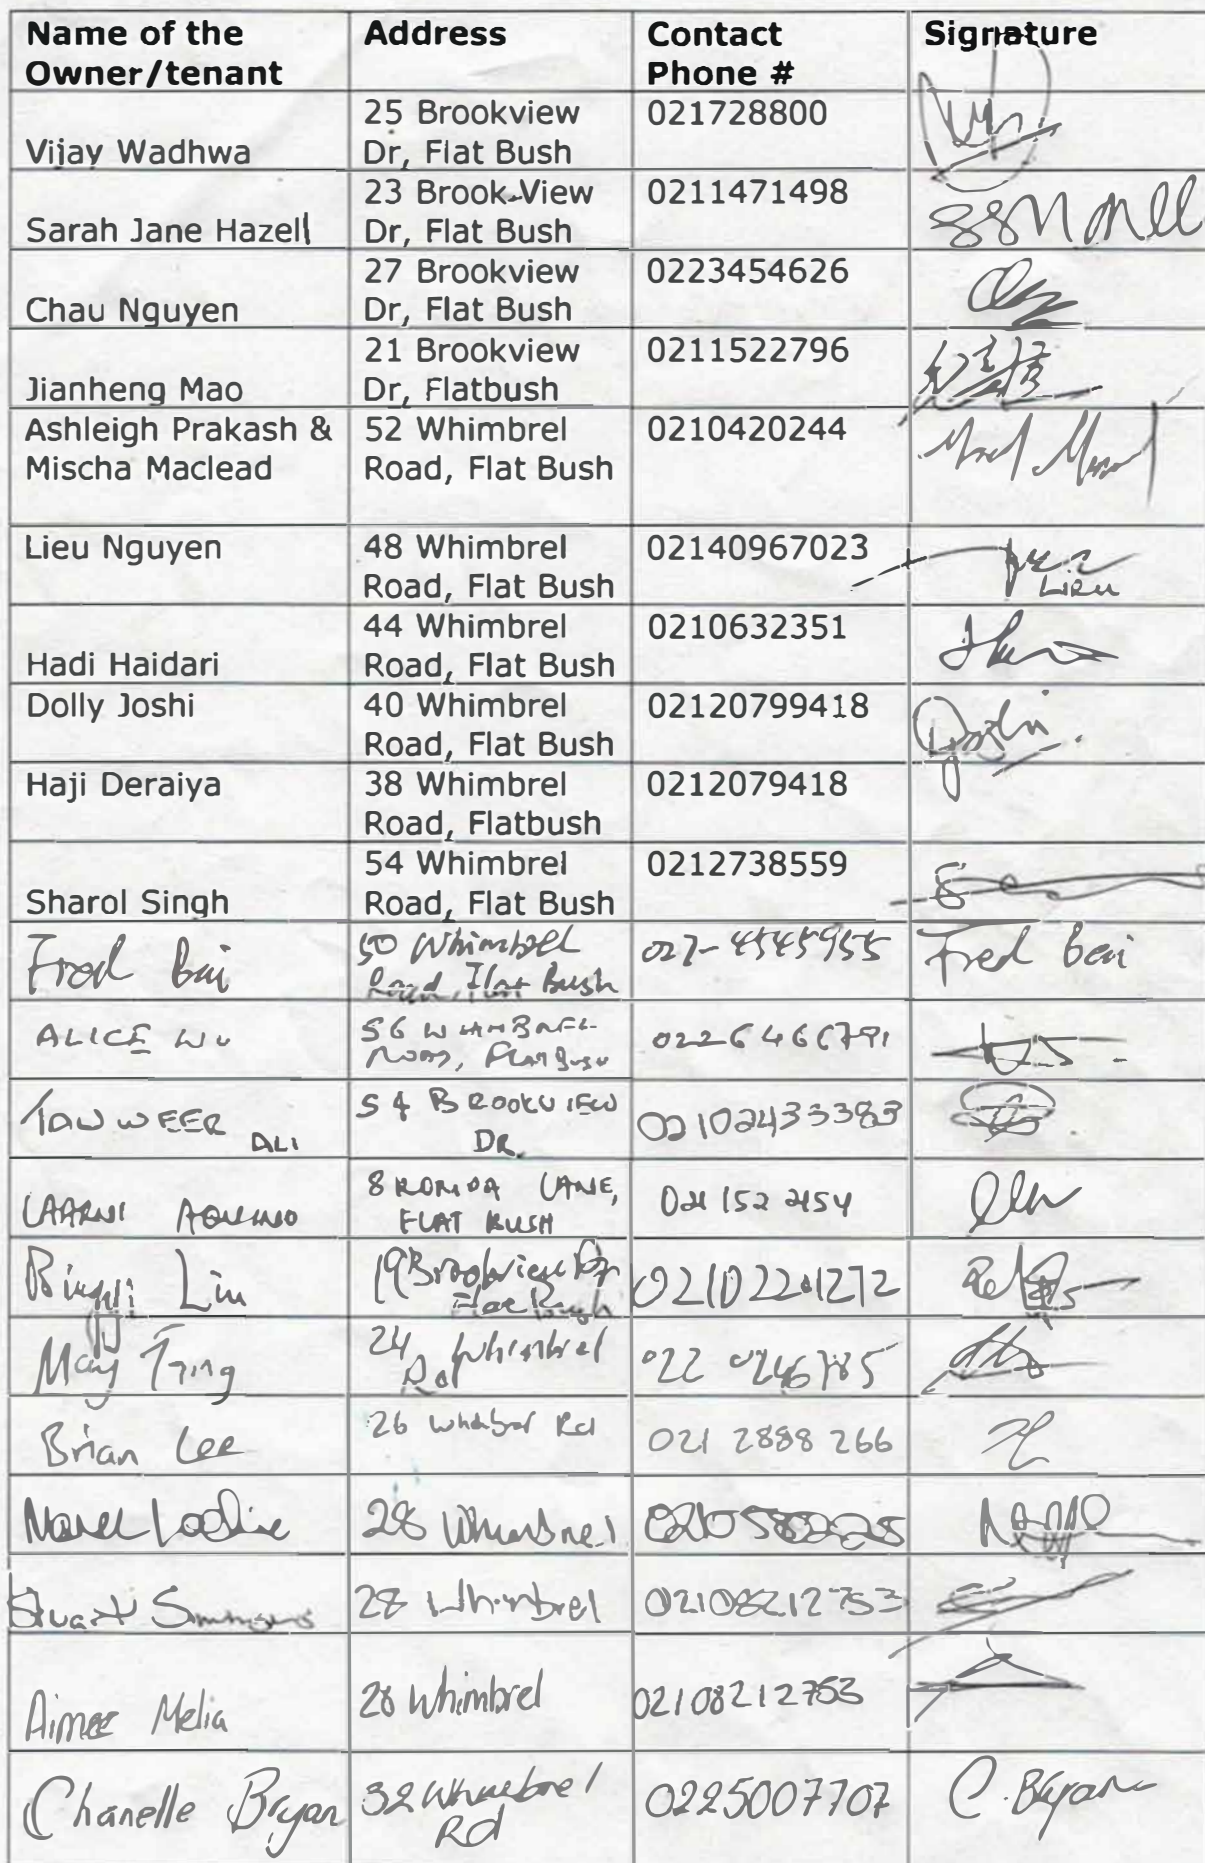 Name of the Owner/tenant Address Contact Phone # Signature
Vijay Wadhwa 25 Brookview Dr, Flat Bush 021728800
Sarah Jane Hazell 23 Brook-View Dr, Flat Bush 0211471498
Chau Nguyen 27 Brookview Dr, Flat Bush 0223454626
Jianheng Mao 21 Brookview Dr, Flatbush 0211522796
Ashleigh Prakash & Mischa Maclead 52 Whimbrel Road, Flat Bush 0210420244
Lieu Nguyen 48 Whimbrel Road, Flat Bush 02140967023 Lieu
Hadi Haidari 44 Whimbrel Road, Flat Bush 0210632351
Dolly Joshi 40 Whimbrel Road, Flat Bush 02120799418
Haji Deraiya 38 Whimbrel Road, Flatbush 0212079418
Sharol Singh 54 Whimbrel Road, Flat Bush 0212738559
Fred Bai 50 Whimbrel Road, Flat Bush 027-4545955 Fred Bai
ALICE WU 56 WHIMBREL ROAD, FLAT BUSH
TANWEER ALI 54 BROOKVIEW DR. 02102433383
LAARNI AQUINO 8 LANE, FLAT BUSH 021 152 2154
Lin 19 Brookview Dr Flat Bush
May 24 Whimbrel Rd 022
Brian Lee 26 Whimbrel Rd 021 2888 266
28 Whimbrel
Stuart 28 Whimbrel 02108212753
Aimee Melia 28 Whimbrel 02108212753
Chanelle Bryan 32 Whimbrel Rd 0225007707 C. Bryan